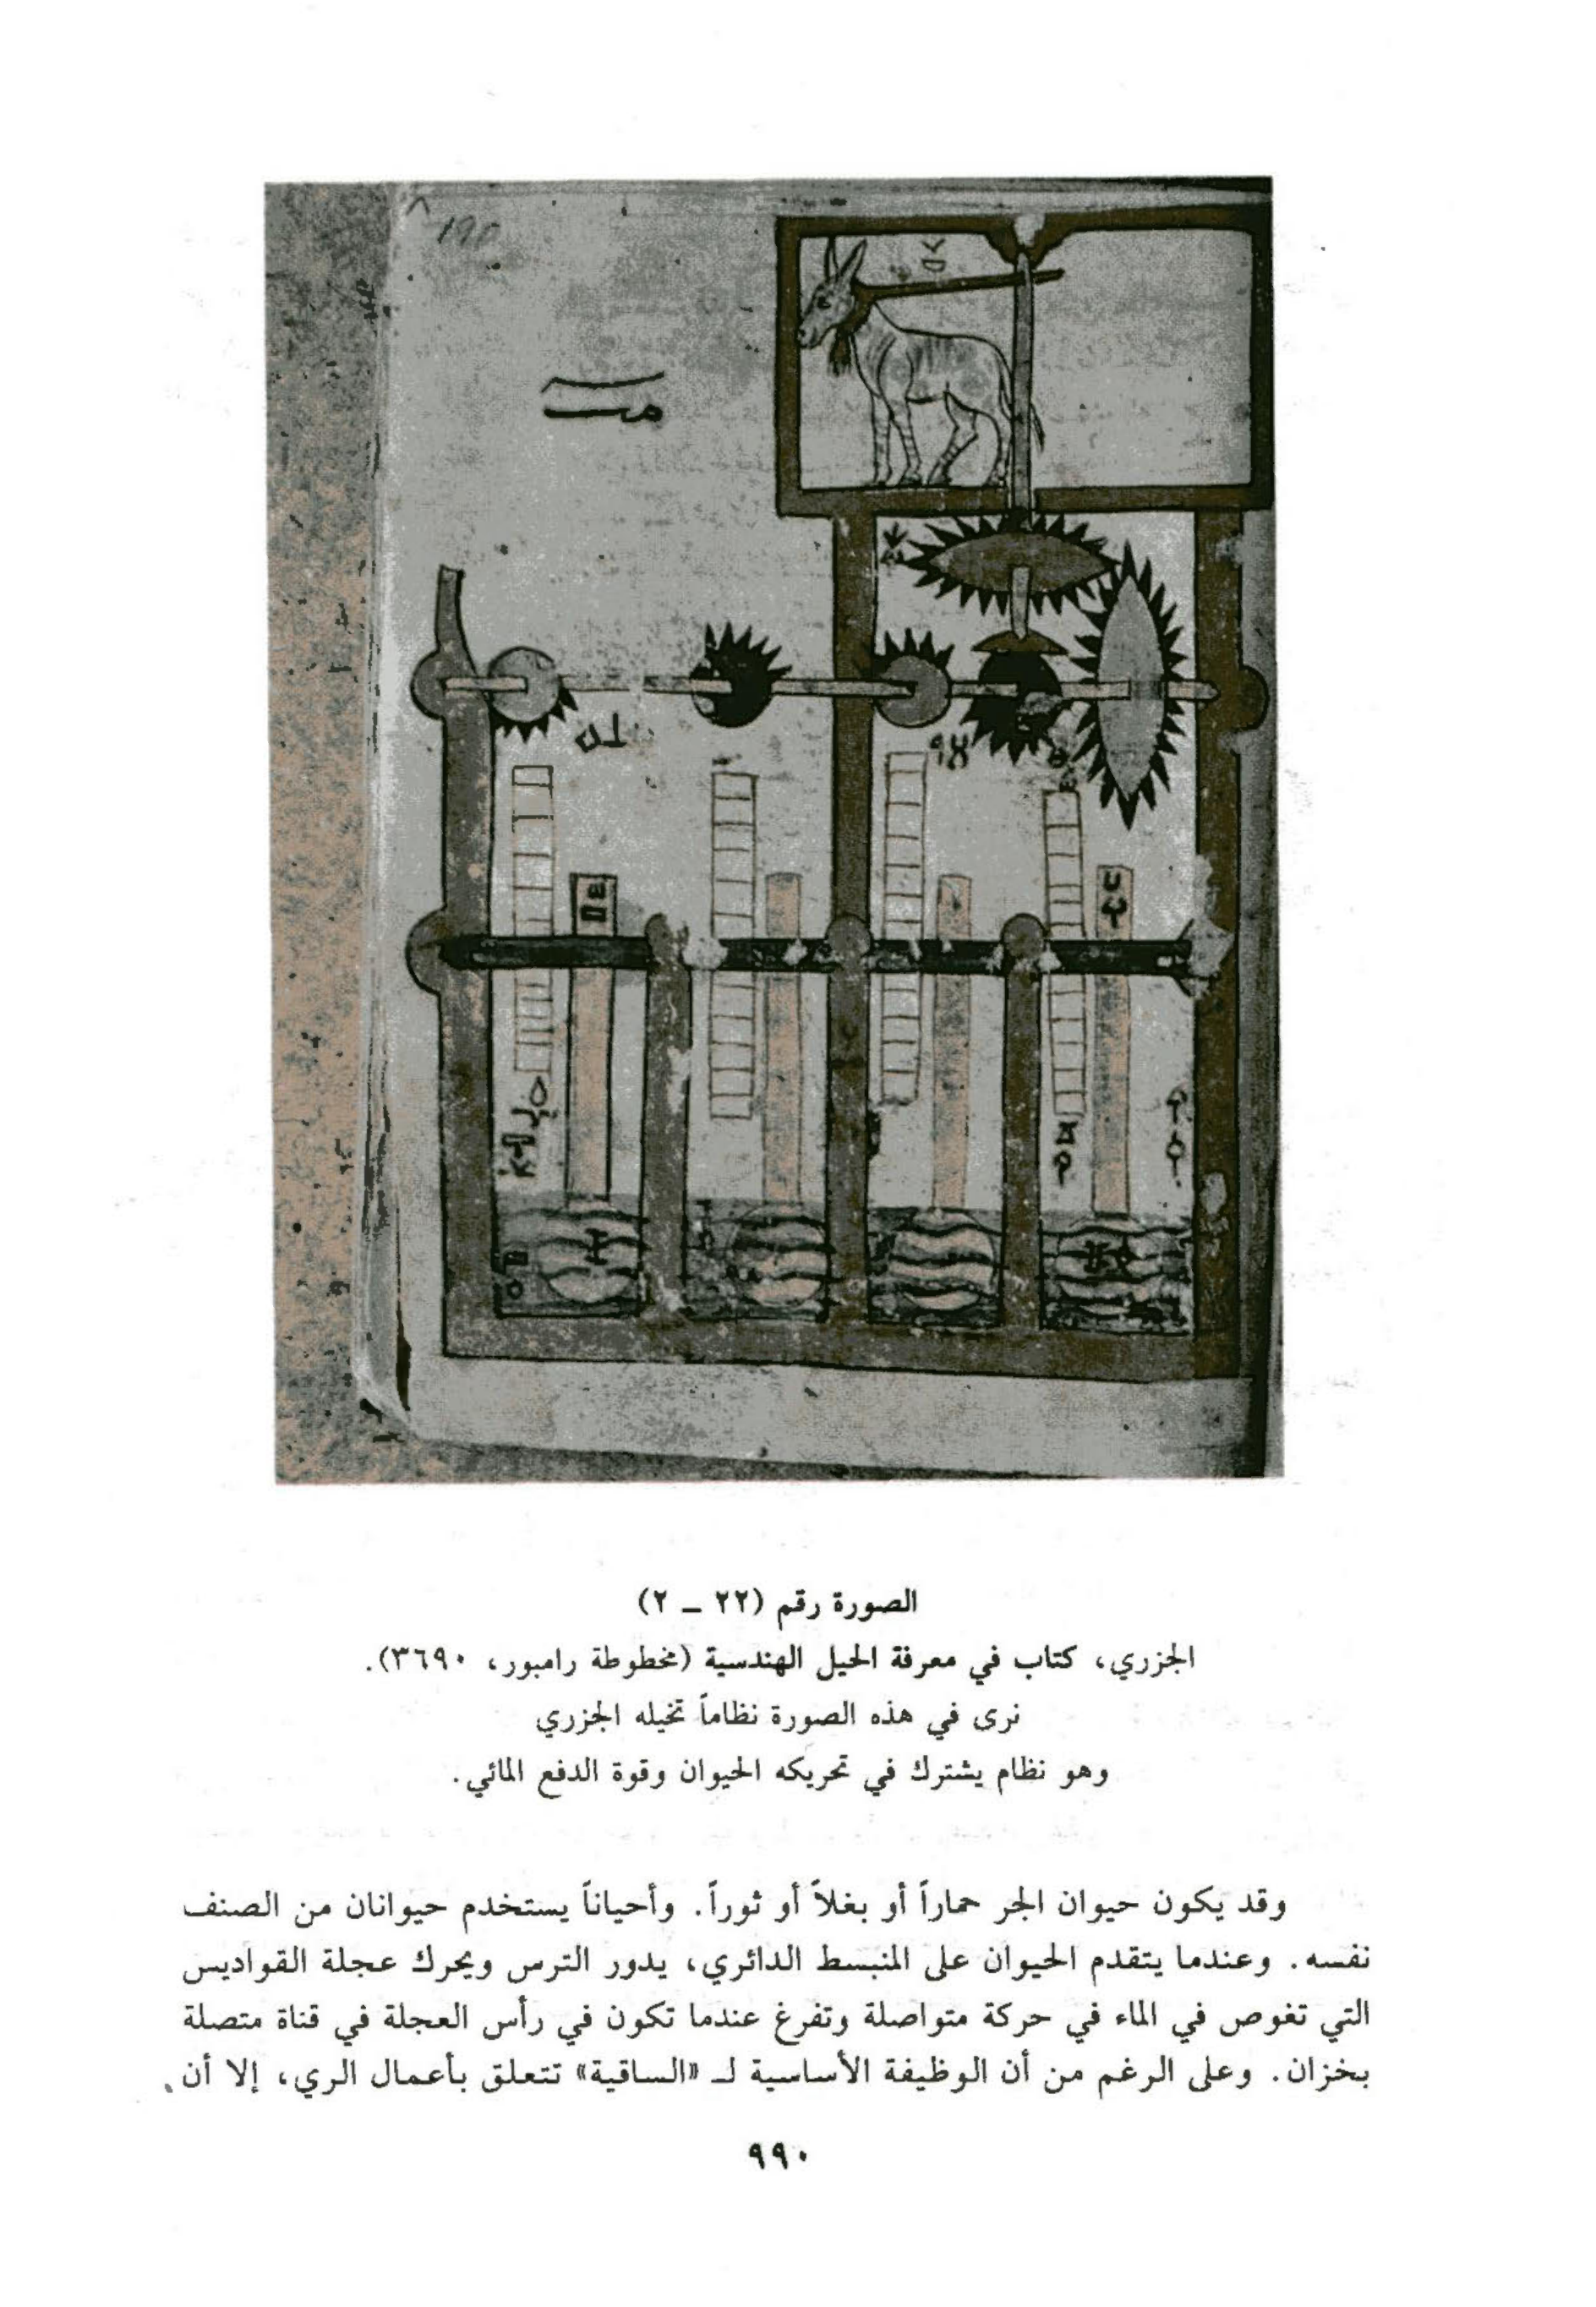 الصورة رقم (٢٢ ـ ٢)
الجزري، كتاب في معرفة الحيل الهندسية (مخطوطة رامبور، ٣٦٩٠).
نرى في هذه الصورة نظاماً تخيله الجزري
وهو نظام يشترك في تحريكه الحيوان وقوة الدفع المائي.
وقد يكون حيوان الجر حماراً أو بغلاً أو ثوراً. وأحياناً يستخدم حيوانان من الصنف
نفسه. وعندما يتقدم الحيوان على المنبسط الدائري، يدور الترس ويحرك عجلة القواديس
التي تغوص في الماء في حركة متواصلة وتفرغ عندما تكون في رأس العجلة في قناة متصلة
بخزان. وعلى الرغم من أن الوظيفة الأساسية لـ «الساقية» تتعلق بأعمال الري، إلا أن
٩٩٠